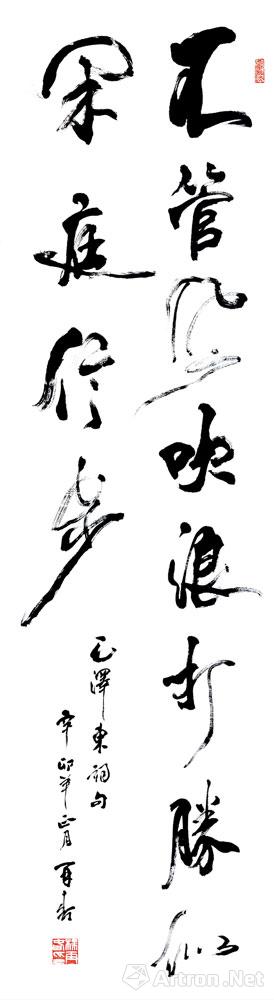 不管风吹浪打勝似
闲庭信步
毛澤東詞句
辛卯年正月
Artron.Net